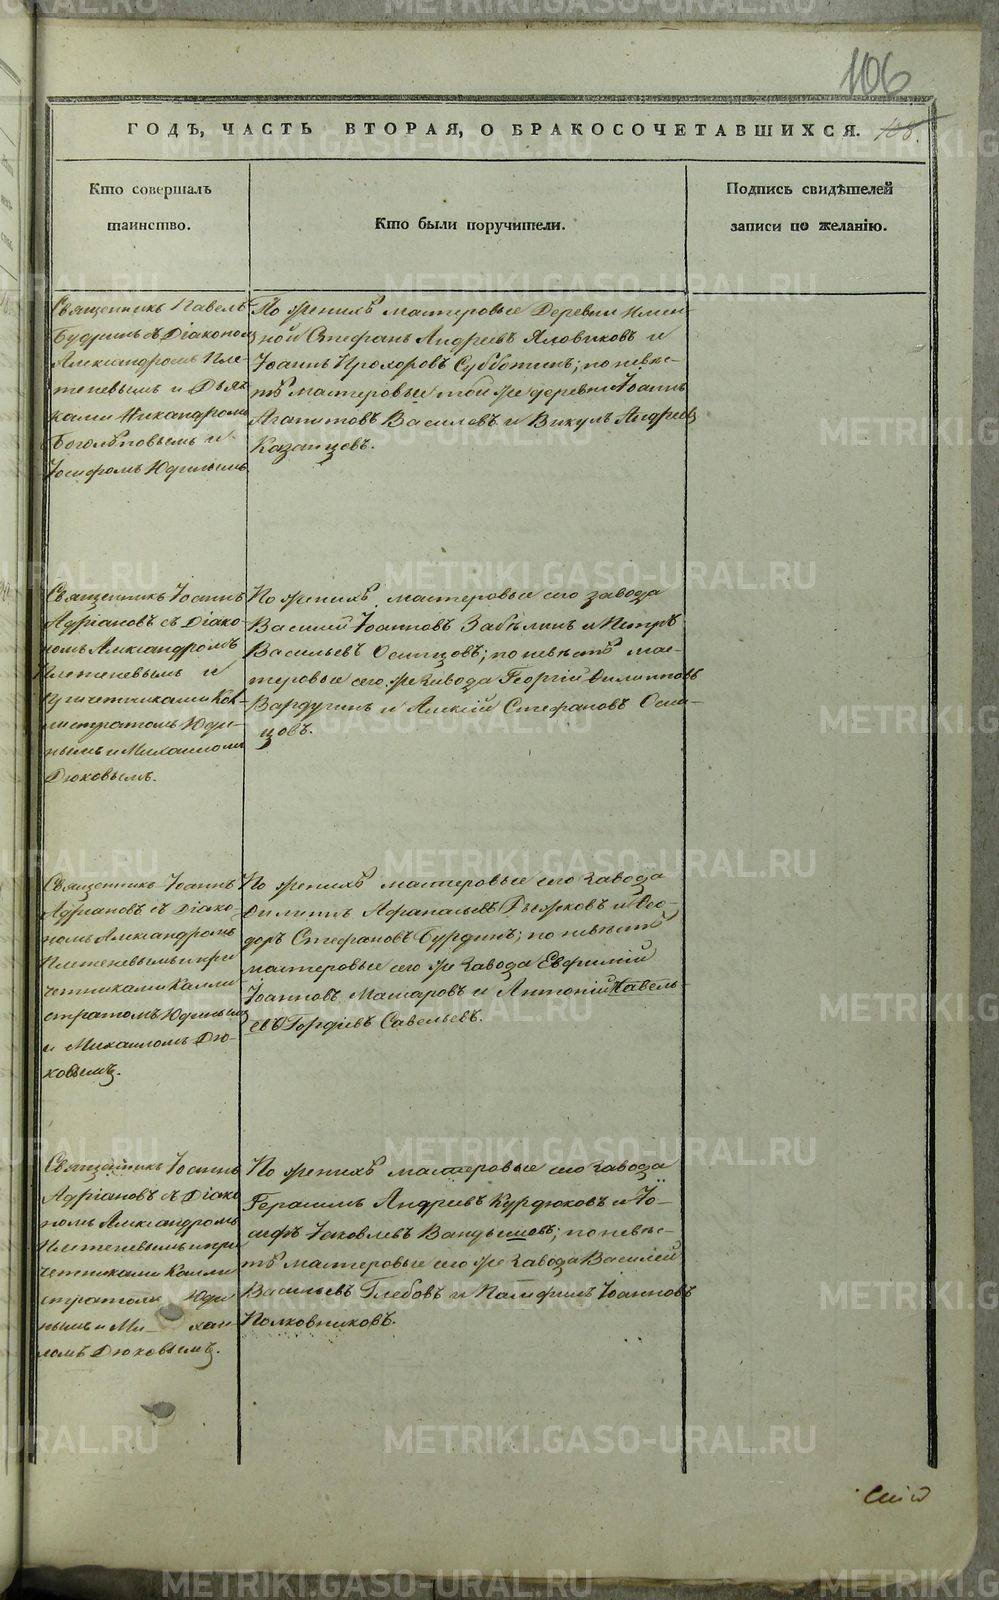 106
ГОДЪ, ЧАСТЬ ВТОРАЯ, О БРАКОСОЧЕТАВШИХСЯ. 108.
Кто совершалъ
таинство.
Кто были поручители.
Подпись свидѣтелей
записи по желанію.
Священникъ Павелъ
Будринъ съ Діакономъ
Александромъ Пле-
теневымъ и Дьяч-
ками Никандромъ
Боголѣповымъ и
Іосифомъ Юдинымъ
По женихѣ мастеровые Деревни
ной Стефанъ Андреевъ Яловиковъ и
Іоаннъ Прохоровъ Субботинъ; по невѣс-
тѣ мастеровые той же деревни Іоаннъ
Агапитовъ Василевъ и Викулъ Андреевъ
Казанцевъ.
Священникъ Іоаннъ
Адріановъ съ Діако-
номъ Александромъ
Плетеневымъ и
причетниками Кал-
листратомъ Юди-
нымъ и Михаиломъ
Дюковымъ.
По женихѣ мастеровые сего завода
Василій Іоанновъ Забѣлинъ и Петръ
Васильевъ Осинцовъ; по невѣстѣ мас-
теровые сего же Завода Георгій Филипповъ
Вардугинъ и Алексій Стефановъ Осин-
цовъ.
Священникъ Іоаннъ
Адріановъ съ Діако-
номъ Александромъ
Плетеневымъ и при
четниками Калли
стратомъ Юдинымъ
и Михаиломъ Дю-
ковымъ.
По женихѣ мастеровые сего Завода
Филиппъ Афанасьевъ Рыжковъ и Ѳео-
доръ Стефановъ Бурдинъ; по невѣстѣ
мастеровые сего же Завода Евфимій
Іоанновъ Макаровъ и Антоній Савель-
евъ Гордѣевъ Савельевъ.
Священникъ Іоаннъ
Адріановъ съ Діако
номъ Александромъ
Плетеневымъ и при
четниками Калли
стратомъ Юди
нымъ и Ми- хаи-
ломъ Дюковымъ.
По женихѣ мастеровые сего Завода
Герасимъ Андреевъ Курдюковъ и Іо-
сифъ Іаковлевъ Вандышовъ; по невѣс-
тѣ мастеровые сего же Завода Василій
Васильевъ Глебовъ и Памфилъ Іоанновъ
Полковниковъ.
METRIKI.GASO-URAL.RU